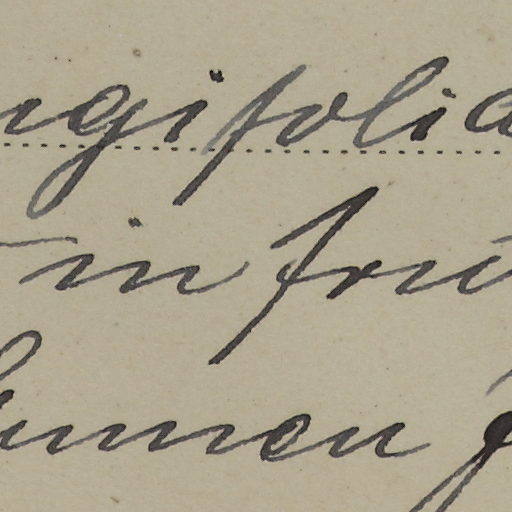 ngifolia
in fru
lumen